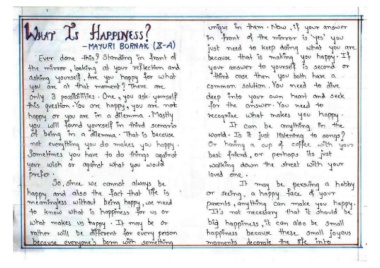 WHAT IS HAPPINESS?
-MAYURI BORNAK (X-A)
Ever done this? Standing in front of
the mirror, looking at your reflection and
asking yourself, Are you happy for what
you are at that moment? There are
only 3 possibilities. One, you ask yourself
this question. You are happy, you are not
happy or you are in a dilemma. Mostly
you will found yourself in third scenario
of being in a dilemma. That is because
not everything you do makes you happy.
Sometimes you have to do things against
your wish or against what you would
prefer.
So, since we cannot always be
happy and also the fact that life is
meaningless without being happy, we need
to know what is happiness for us or
what makes us happy. It may be or
rather will be different for every person
because everyone's born with something
unique in them. Now, if your answer
in front of the mirror is 'yes' you
just need to keep doing what you are
because that is making you happy. If
your answer to yourself is second or
third case then you both have a
common solution. You need to dive
deep into your own heart and seek
for the answer. You need to
recognize what makes you happy.
It can be anything in the
world. Is it just listening to songs?
Or having a cup of coffee with your
best friend, or perhaps its just
walking down the street with your
loved one.
It may be pursuing a hobby
or seeing, a happy face of your
parents, anything can make you happy.
It's not necessary that it should be
big happiness, it can also be small
happiness because these small joyous
moments decorate the life into